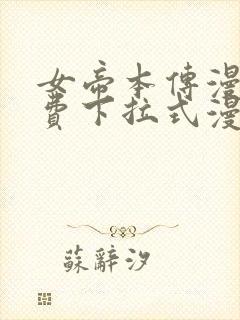 女帝本傳漫
費下拉式漫
蘇辭汐